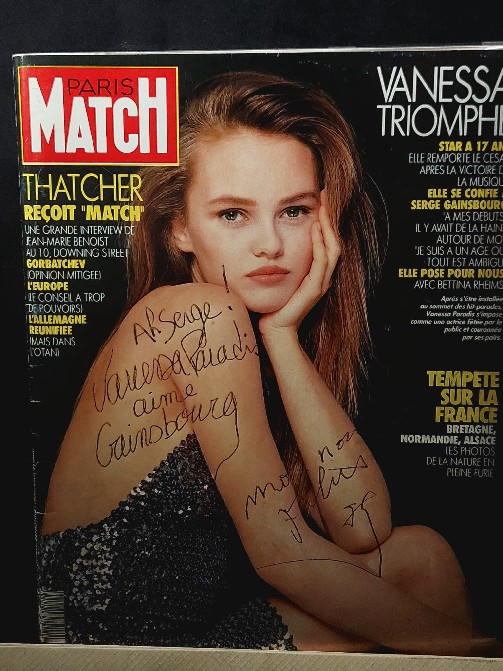 PARIS
MATCH
THATCHER
REÇOIT "MATCH"
UNE GRANDE INTERVIEW DE
JEAN-MARIE BENOIST
AU 10, DOWNING STREET
GORBATCHEV
(OPINION MITIGEE)
L'EUROPE
(LE CONSEIL A TROP
DE POUVOIRS)
L'ALLEMAGNE
REUNIFIEE
(MAIS DANS
L'OTAN)
VANESSA
TRIOMPHE
STAR A 17 AN
ELLE REMPORTE LE CESA
APRES LA VICTOIRE D
LA MUSIQU
ELLE SE CONFIE
SERGE GAINSBOURG
"A MES DEBUTS
IL Y AVAIT DE LA HAIN
AUTOUR DE MO
"JE SUIS A UN AGE O
TOUT EST AMBIGU
ELLE POSE POUR NOUS
AVEC BETTINA RHEIMS
Après s'être installée
au sommet des hit parades,
Vanessa Paradis s'impose
comme une actrice fêtée par le
public et couronnée
par ses pairs.
TEMPETE
SUR LA
FRANCE
BRETAGNE,
NORMANDIE, ALSACE
LES PHOTOS
DE LA NATURE EN
PLEINE FURIE
Ah Serge!
Vanessa Paradis
aime
Gainsbourg
moi non
plus